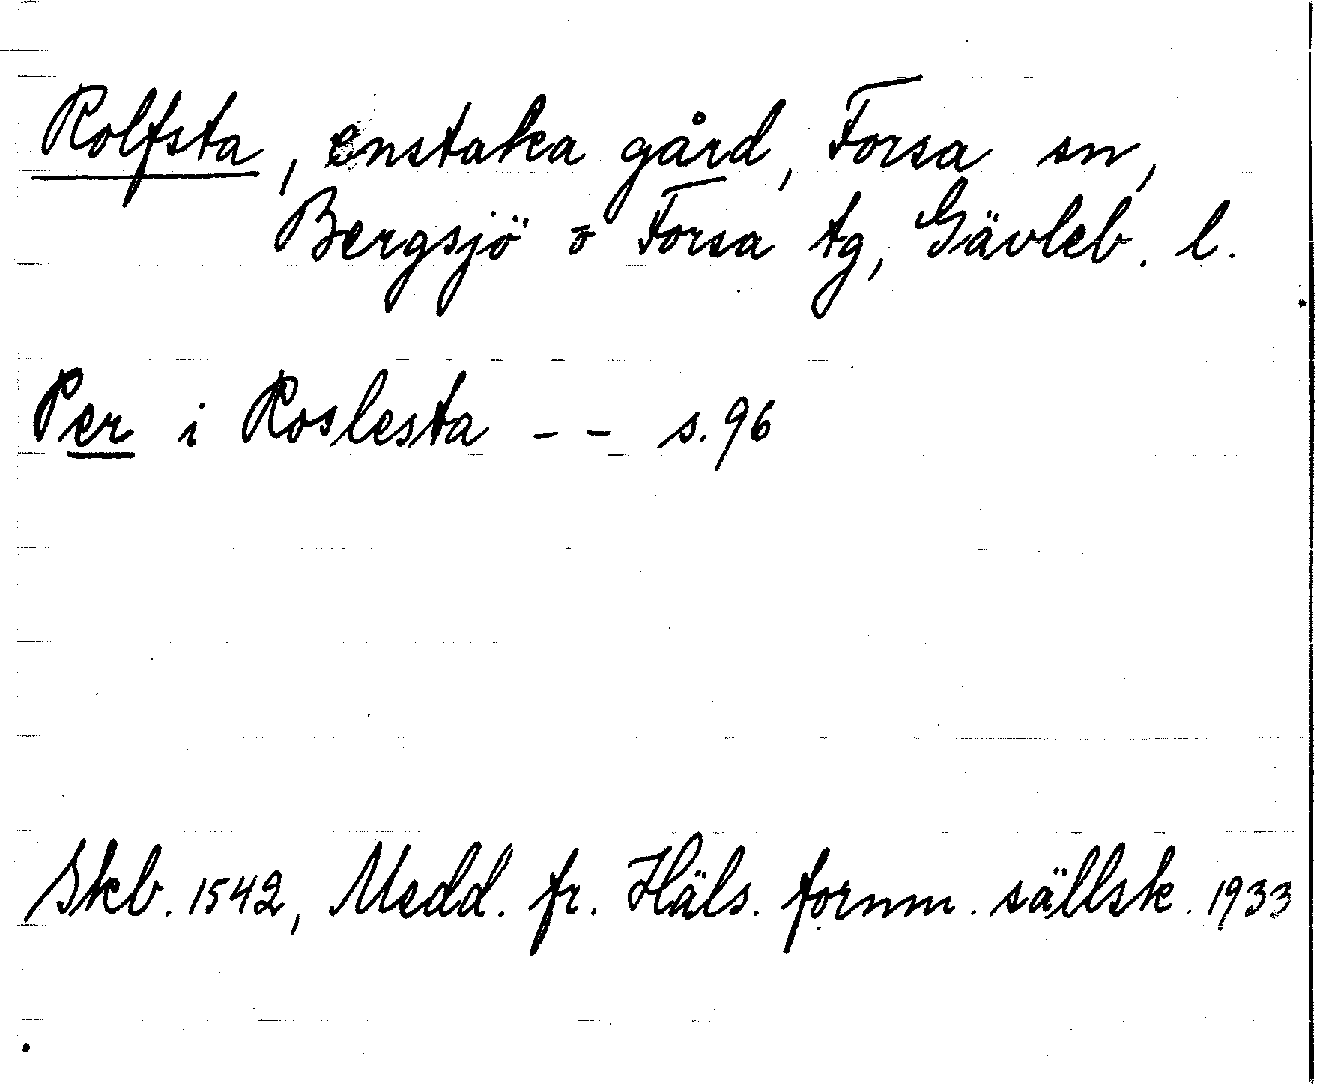 Rolfsta, enstaka gård, Forsa sn,
Bergsjö o Forsa tg, Gävleb. l.
Per i Roslesta -- s. 96
Skb. 1542, Medd. fr. Häls. fornm. sällsk. 1933